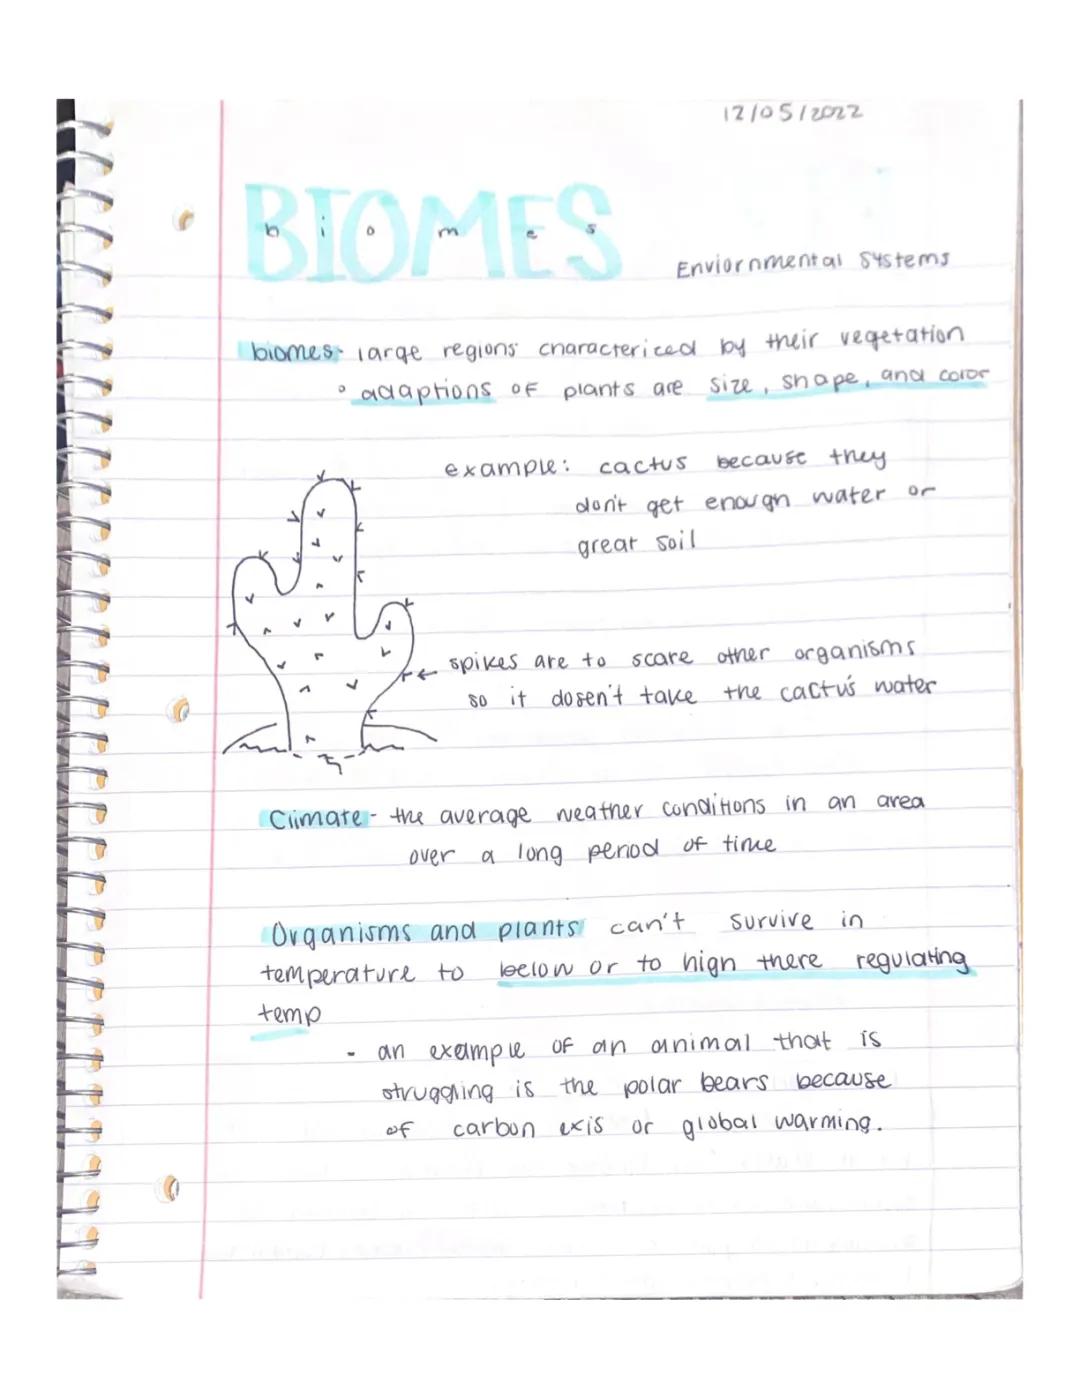 12/05/2022
BIOMES
b i o m e s
Enviornmental Systems
biomes- large regions charactericed by their vegetation
° adaptions of plants are size, shape, and color
example: cactus because they
don't get enough water or
great soil
spikes are to scare other organisms
so it dosen't take the cactu's water
Climate - the average weather conditions in an area
over a long period of time
Organisms and plants can't survive in
temperature to below or to high there regulating
temp
- an example of an animal that is
struggling is the polar bears because
of carbon exis or global warming.